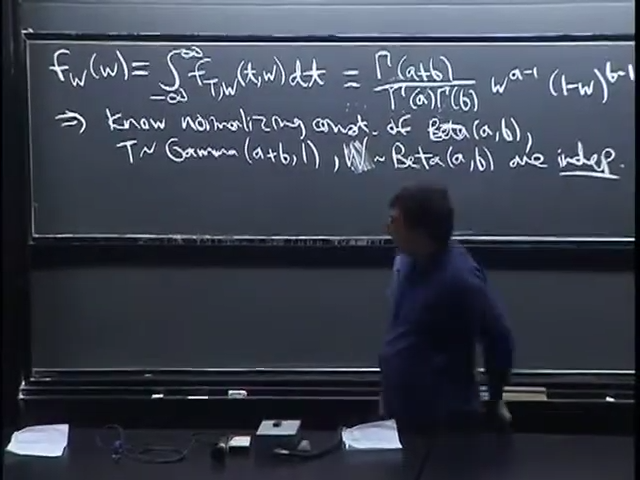 f_W(w) = ∫_{-∞}^{∞} f_{T,W}(t,w) dt = Γ(a+b)/(Γ(a)Γ(b)) w^{a-1} (1-w)^{b-1}
⇒ Know normalizing const. of Beta(a,b),
T ~ Gamma(a+b,1), W ~ Beta(a,b) are indep.